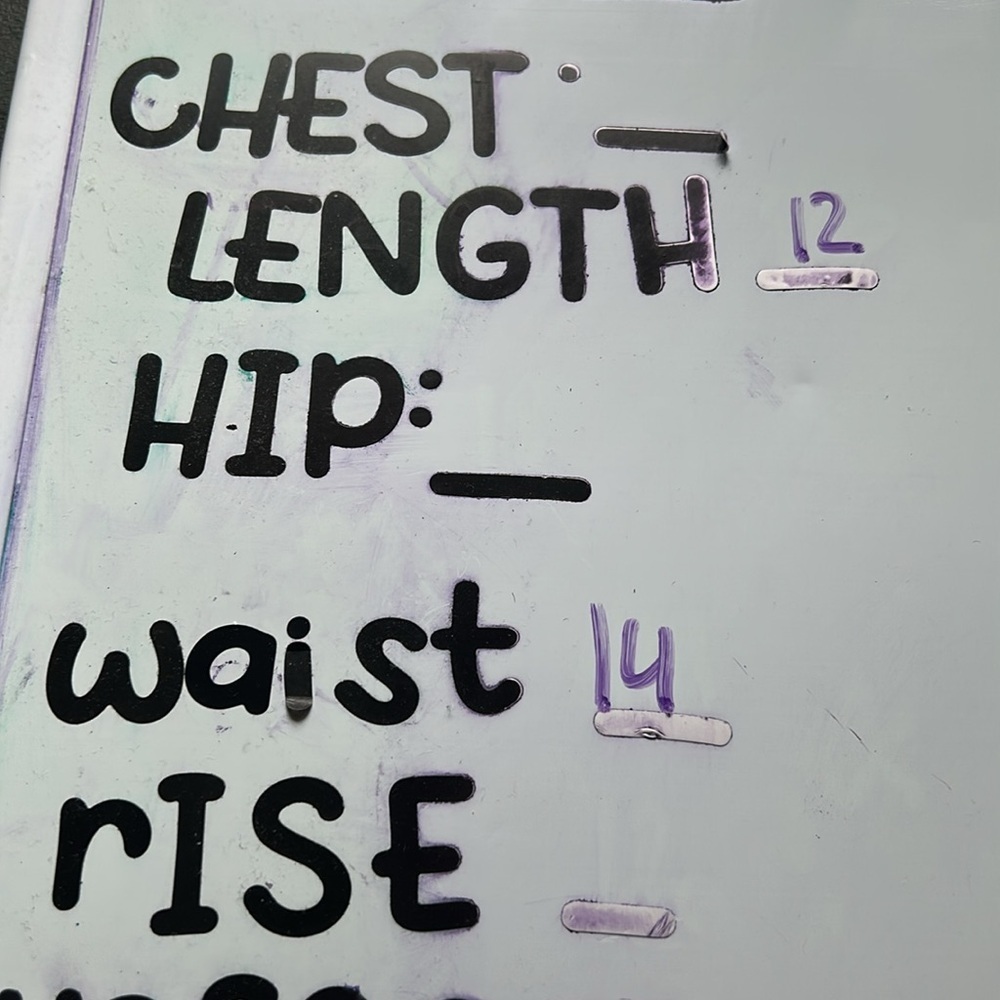 CHEST: __
LENGTH 12
HIP: __
waist 14
rISE __